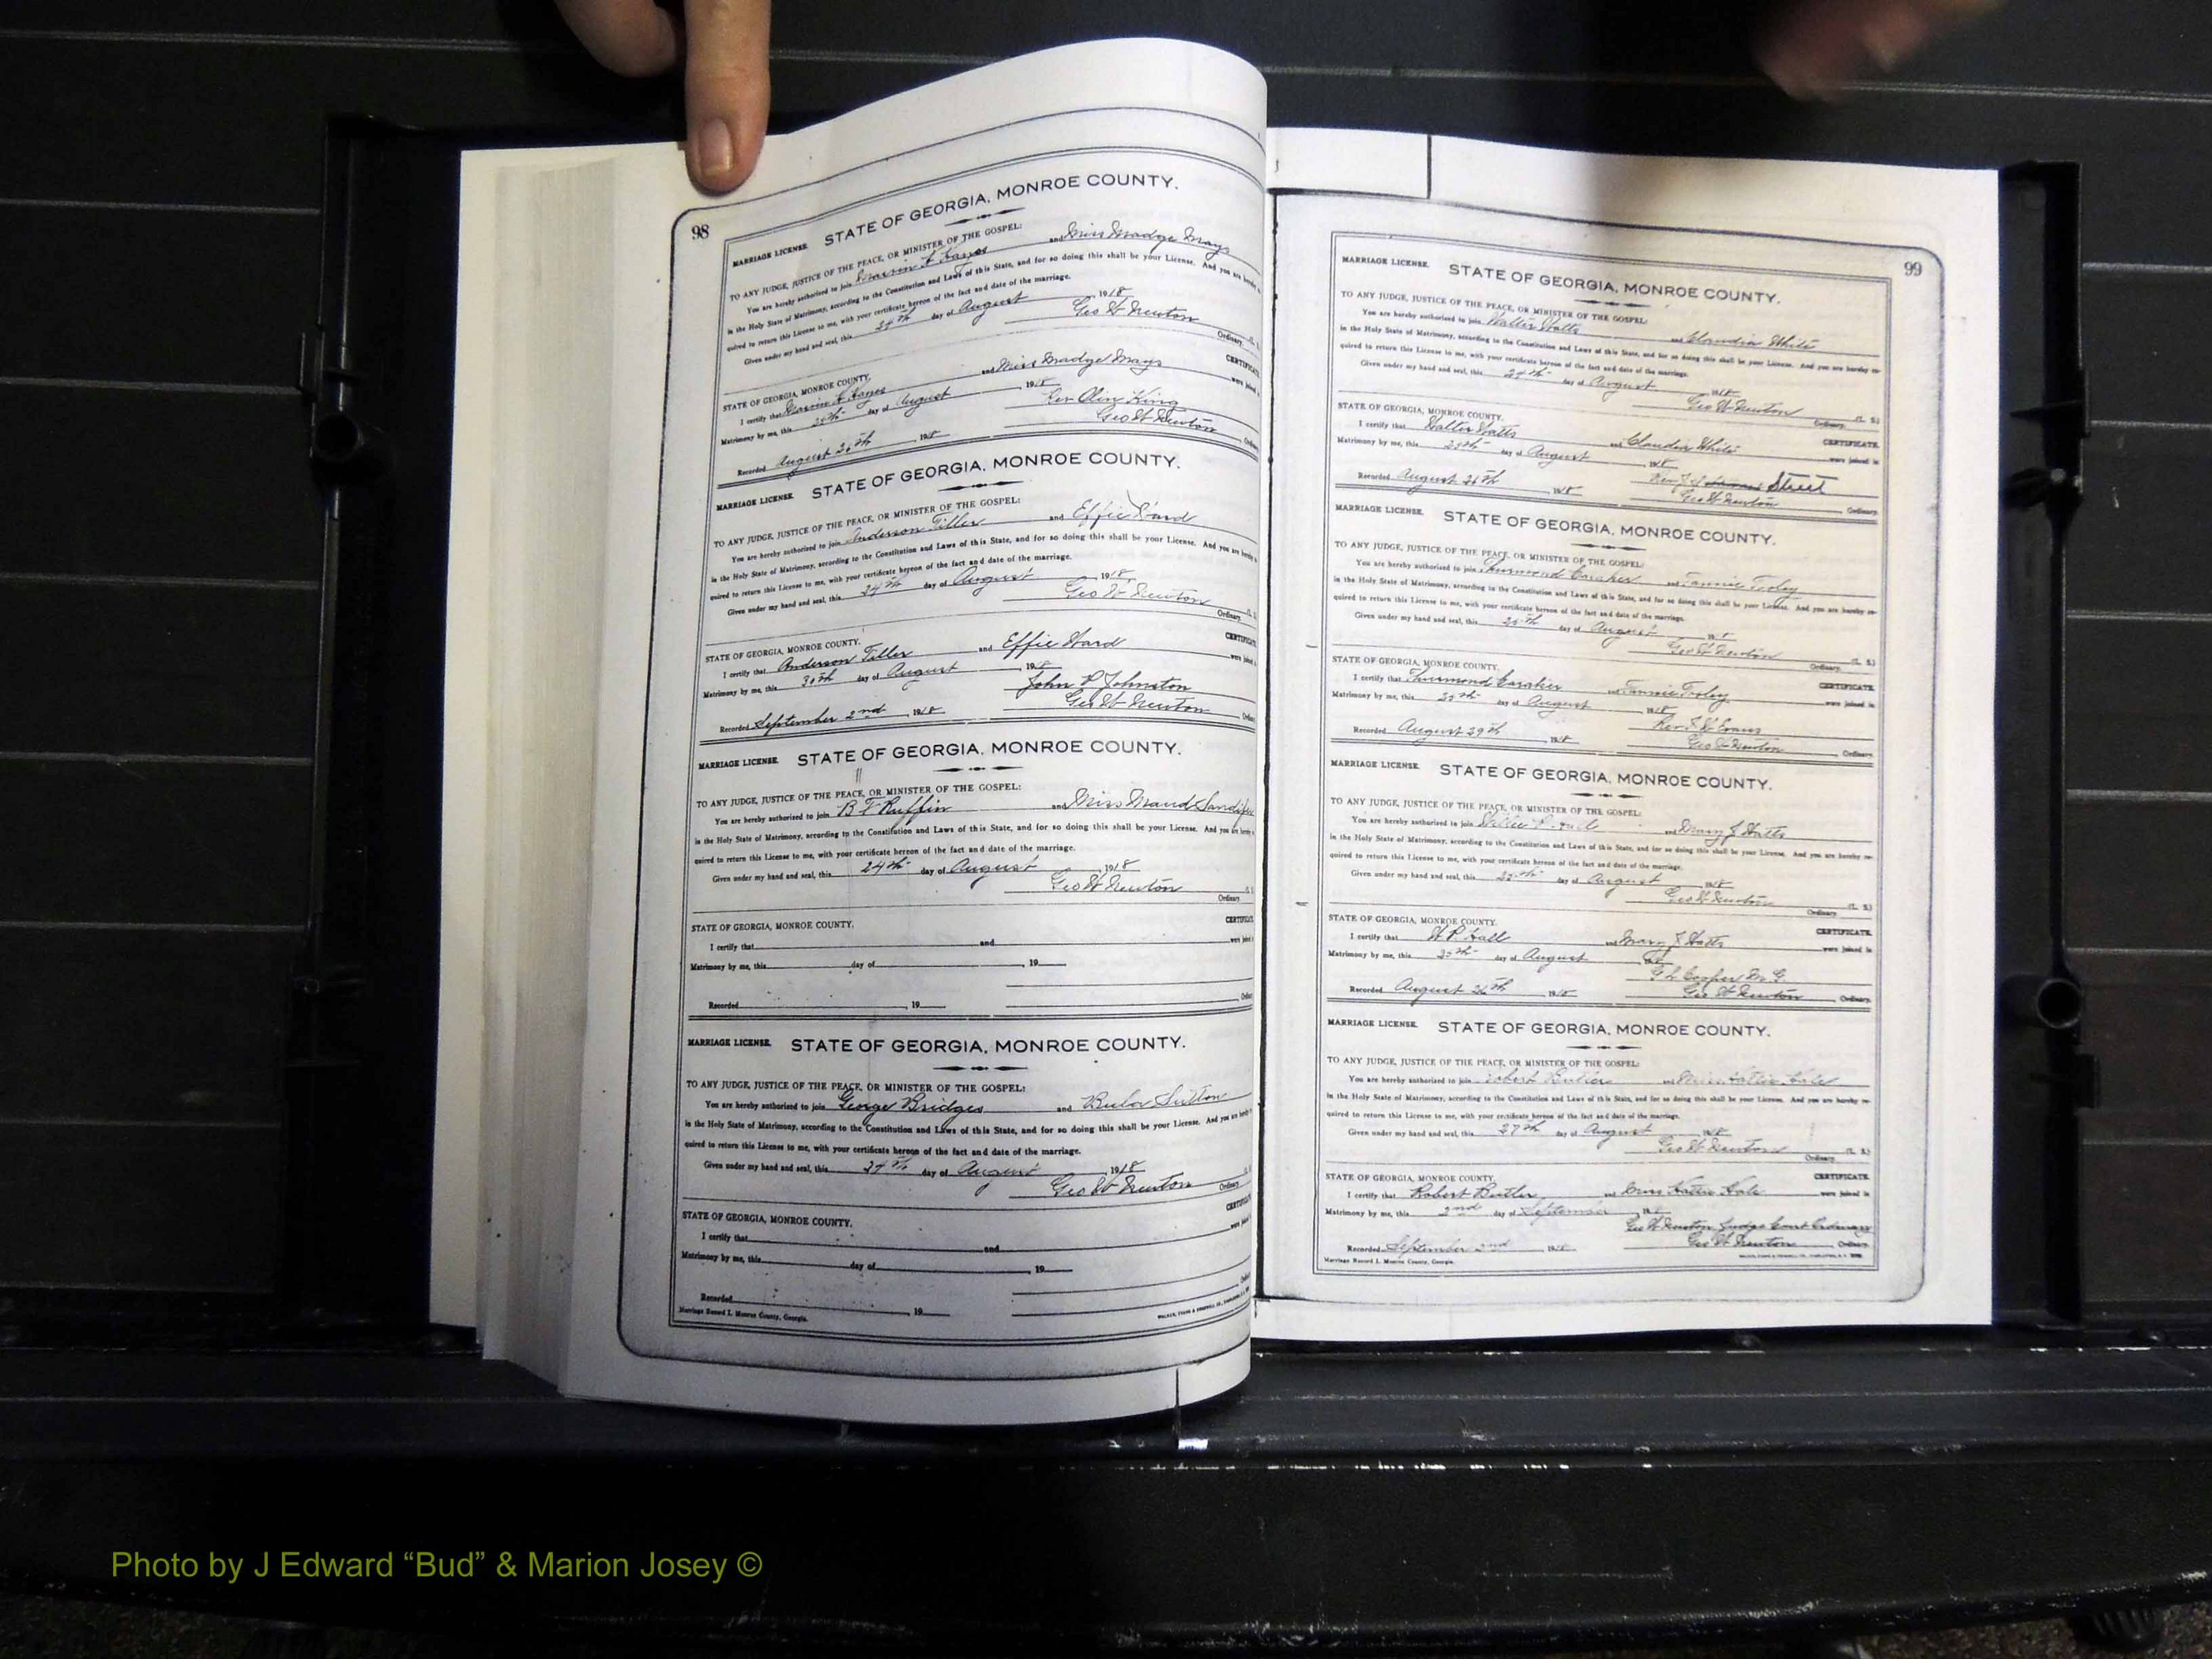 98
STATE OF GEORGIA, MONROE COUNTY.
MARRIAGE LICENSE.
TO ANY JUDGE, JUSTICE OF THE PEACE, OR MINISTER OF THE GOSPEL:
You are hereby authorized to join and Miss Madge Mays
in the Holy State of Matrimony, according to the Constitution and Laws of this State, and for so doing this shall be your License. And you are hereby
quired to return this License to me, with your certificate hereon of the fact and date of the marriage.
Given under my hand and seal, this 24th day of August 1918
Geo W Newton
Ordinary.
CERTIFICATE.
STATE OF GEORGIA, MONROE COUNTY.
I certify that and Miss Madge Mays were joined
Matrimony by me, this day of August 1918
Rev Olin King
Recorded August 1918 Geo W Newton
MARRIAGE LICENSE. STATE OF GEORGIA, MONROE COUNTY.
TO ANY JUDGE, JUSTICE OF THE PEACE, OR MINISTER OF THE GOSPEL:
You are hereby authorized to join Anderson Tiller and Effie Ward
in the Holy State of Matrimony, according to the Constitution and Laws of this State, and for so doing this shall be your License. And you are hereby
quired to return this License to me, with your certificate hereon of the fact and date of the marriage.
Given under my hand and seal, this 24th day of August 1918
Geo W Newton
Ordinary.
CERTIFICATE.
STATE OF GEORGIA, MONROE COUNTY.
I certify that Anderson Tiller and Effie Ward were joined
Matrimony by me, this 30th day of August 1918
John P Johnston
Recorded September 2nd 1918 Geo W Newton
MARRIAGE LICENSE. STATE OF GEORGIA, MONROE COUNTY.
TO ANY JUDGE, JUSTICE OF THE PEACE, OR MINISTER OF THE GOSPEL:
You are hereby authorized to join B F Ruffin and Miss Maud
in the Holy State of Matrimony, according to the Constitution and Laws of this State, and for so doing this shall be your License. And you are hereby
quired to return this License to me, with your certificate hereon of the fact and date of the marriage.
Given under my hand and seal, this 24th day of August 1918
Geo W Newton
Ordinary.
CERTIFICATE.
STATE OF GEORGIA, MONROE COUNTY.
I certify that and were joined
Matrimony by me, this day of , 19
Recorded , 19
MARRIAGE LICENSE. STATE OF GEORGIA, MONROE COUNTY.
TO ANY JUDGE, JUSTICE OF THE PEACE, OR MINISTER OF THE GOSPEL:
You are hereby authorized to join George Bridges and Beulor Sutton
in the Holy State of Matrimony, according to the Constitution and Laws of this State, and for so doing this shall be your License. And you are hereby
quired to return this License to me, with your certificate hereon of the fact and date of the marriage.
Given under my hand and seal, this 24th day of August 1918
Geo W Newton Ordinary.
STATE OF GEORGIA, MONROE COUNTY.
I certify that and
Matrimony by me, this day of , 19
Recorded , 19
Marriage Record I. Monroe County, Georgia.
99
MARRIAGE LICENSE. STATE OF GEORGIA, MONROE COUNTY.
TO ANY JUDGE, JUSTICE OF THE PEACE, OR MINISTER OF THE GOSPEL:
You are hereby authorized to join Walter Watts and Claudia White
in the Holy State of Matrimony, according to the Constitution and Laws of this State, and for so doing this shall be your License. And you are hereby re-
quired to return this License to me, with your certificate hereon of the fact and date of the marriage.
Given under my hand and seal, this 24th day of August 1918
Geo W Newton (L. S.)
Ordinary.
STATE OF GEORGIA, MONROE COUNTY. CERTIFICATE.
I certify that Walter Watts and Claudia White were joined in
Matrimony by me, this day of August 1918
Rev Street
Recorded August 26th 1918 Geo W Newton Ordinary.
MARRIAGE LICENSE. STATE OF GEORGIA, MONROE COUNTY.
TO ANY JUDGE, JUSTICE OF THE PEACE, OR MINISTER OF THE GOSPEL:
You are hereby authorized to join and
in the Holy State of Matrimony, according to the Constitution and Laws of this State, and for so doing this shall be your License. And you are hereby re-
quired to return this License to me, with your certificate hereon of the fact and date of the marriage.
Given under my hand and seal, this day of August 1918
Geo W Newton (L. S.)
Ordinary.
STATE OF GEORGIA, MONROE COUNTY. CERTIFICATE.
I certify that and were joined in
Matrimony by me, this day of August 1918
Rev Evans
Recorded August 29th 1918 Geo W Newton Ordinary.
MARRIAGE LICENSE. STATE OF GEORGIA, MONROE COUNTY.
TO ANY JUDGE, JUSTICE OF THE PEACE, OR MINISTER OF THE GOSPEL:
You are hereby authorized to join Willie and Mary J Watts
in the Holy State of Matrimony, according to the Constitution and Laws of this State, and for so doing this shall be your License. And you are hereby re-
quired to return this License to me, with your certificate hereon of the fact and date of the marriage.
Given under my hand and seal, this day of August 1918
Geo W Newton (L. S.)
Ordinary.
STATE OF GEORGIA, MONROE COUNTY. CERTIFICATE.
I certify that W P Hall and Mary J Watts were joined in
Matrimony by me, this day of August
G L Cooper M G
Recorded August 26th 1918 Geo W Newton Ordinary.
MARRIAGE LICENSE. STATE OF GEORGIA, MONROE COUNTY.
TO ANY JUDGE, JUSTICE OF THE PEACE, OR MINISTER OF THE GOSPEL:
You are hereby authorized to join Robert Butler and Miss Hattie Hale
in the Holy State of Matrimony, according to the Constitution and Laws of this State, and for so doing this shall be your License. And you are hereby re-
quired to return this License to me, with your certificate hereon of the fact and date of the marriage.
Given under my hand and seal, this 27th day of August 1918
Geo W Newton (L. S.)
Ordinary.
STATE OF GEORGIA, MONROE COUNTY. CERTIFICATE.
I certify that Robert Butler and Miss Hattie Hale were joined in
Matrimony by me, this 2nd day of September 1918
Geo W Newton Judge Court Ordinary
Recorded September 2nd 1918 Geo W Newton Ordinary.
Marriage Record I. Monroe County, Georgia.
Photo by J Edward “Bud” & Marion Josey ©